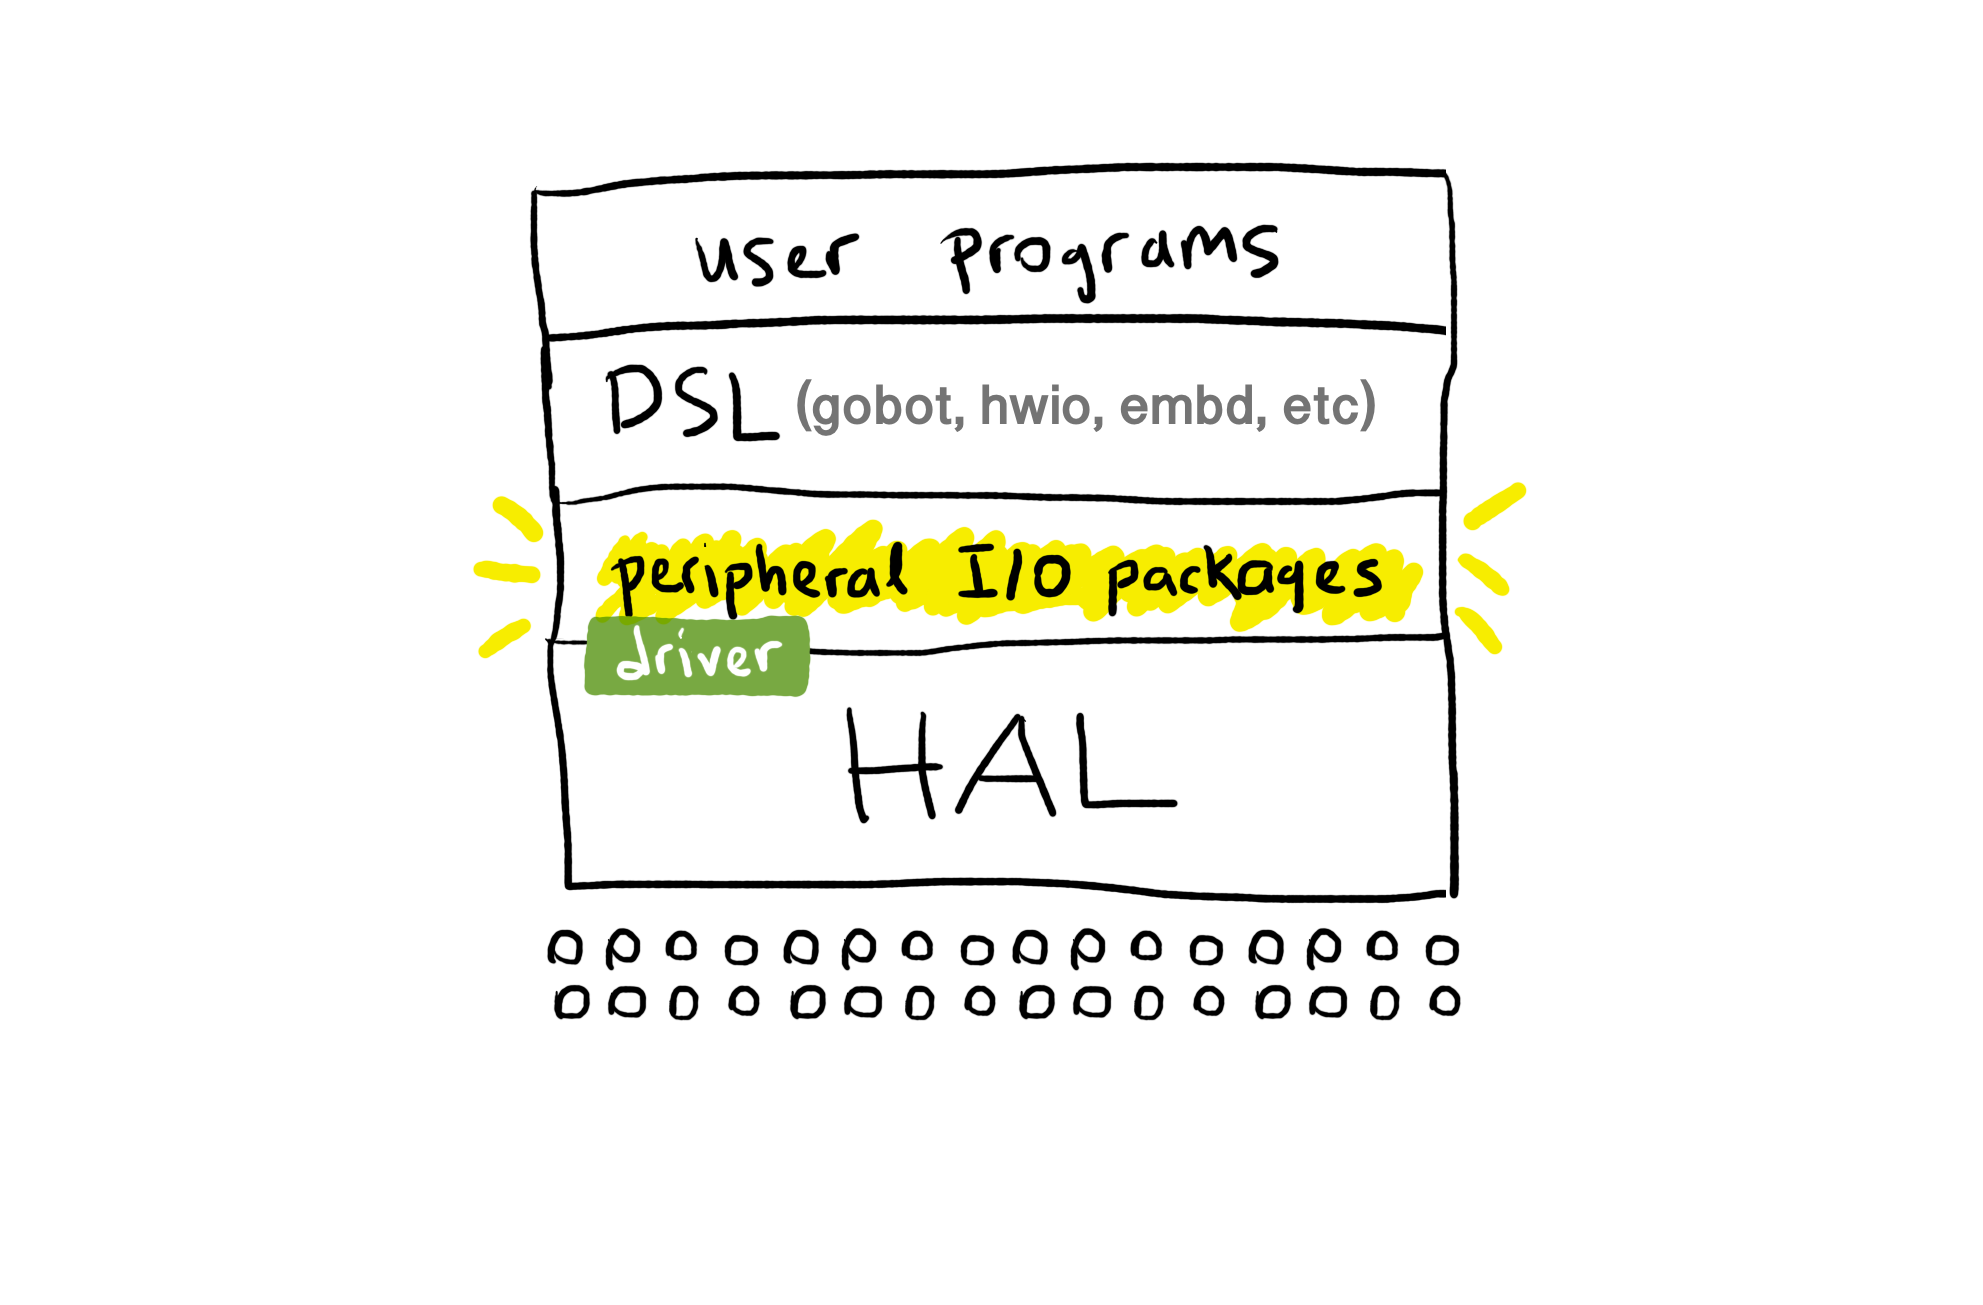 user programs
DSL (gobot, hwio, embd, etc)
peripheral I/O packages
driver
HAL